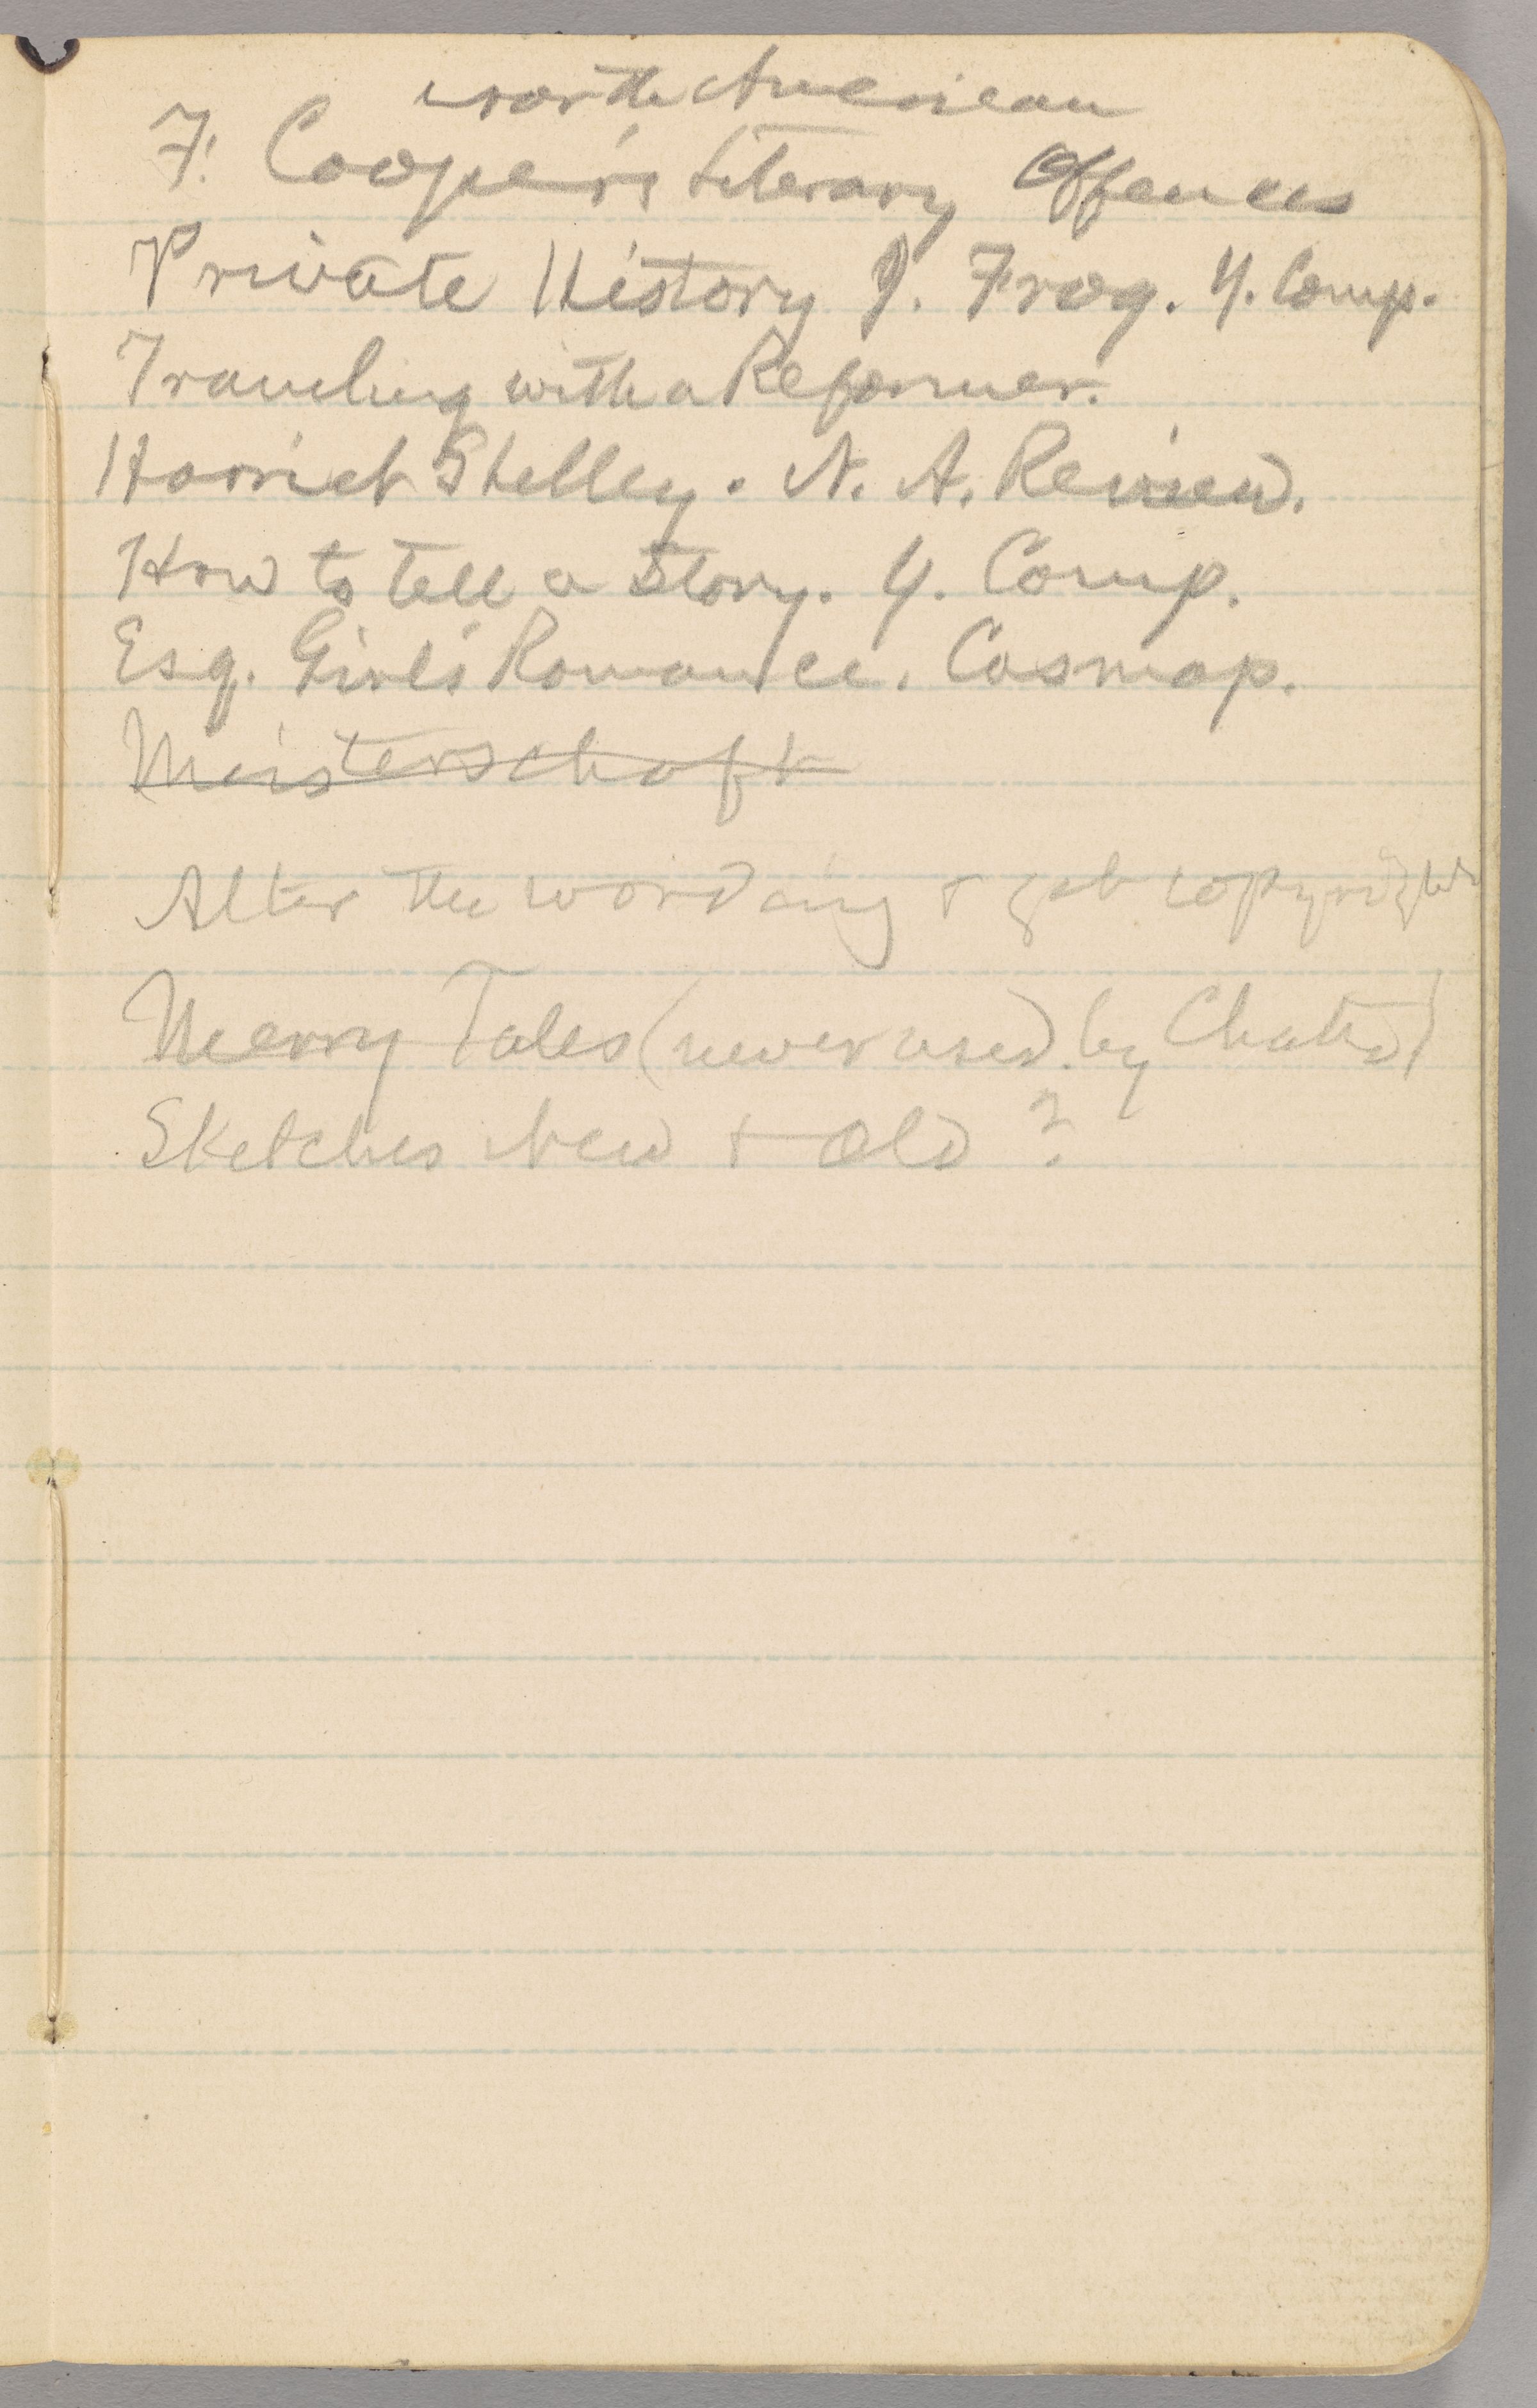 North American
F. Cooper's Literary Offences
Private History J. Frog. Y. Comp.
Traveling with a Reformer.
Harriet Shelley. N. A. Review.
How to tell a Story. Y. Comp.
Esq. Girl's Romance. Cosmop.
Meisterschaft
Alter the wording & get copyright
Merry Tales (never used) by Chatto)
Sketches New & Old ?